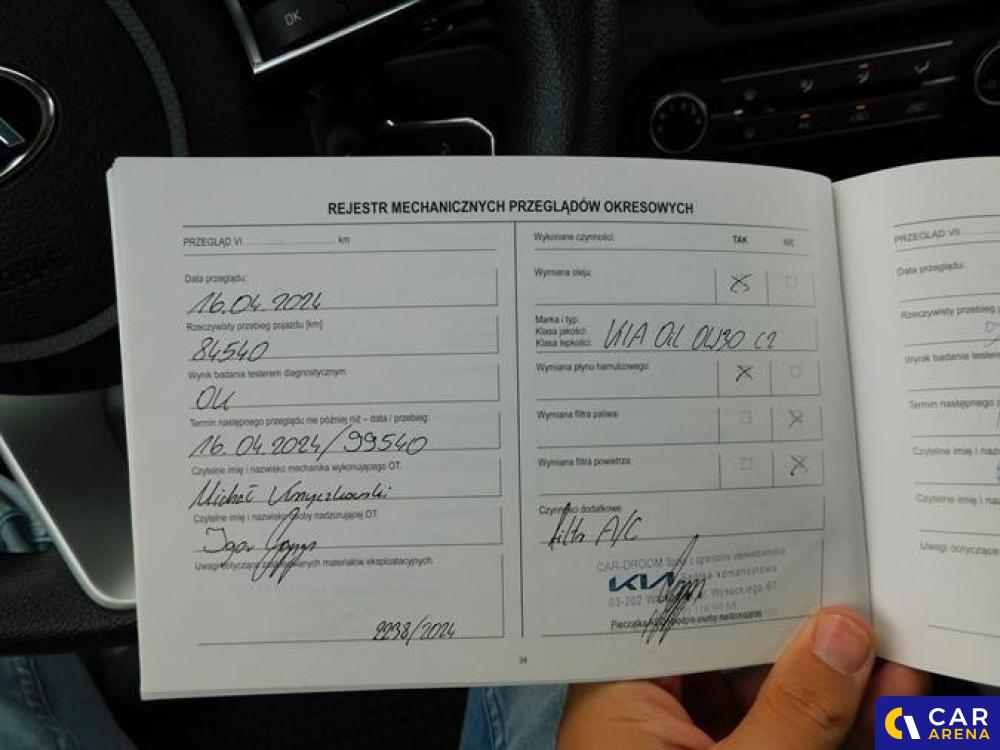 OK
REJESTR MECHANICZNYCH PRZEGLĄDÓW OKRESOWYCH
PRZEGLĄD VI km
Data przeglądu:
16.04.2024
Rzeczywisty przebieg pojazdu [km]:
84540
Wynik badania testerem diagnostycznym:
OK
Termin następnego przeglądu nie później niż – data / przebieg:
16.04.2024/99540
Czytelne imię i nazwisko mechanika wykonującego OT:
Michał
Czytelne imię i nazwisko osoby nadzorującej OT:
Igor
Uwagi dotyczące zastosowanych materiałów eksploatacyjnych:
2238/2024
Wykonane czynności: TAK NIE
Wymiana oleju:
Marka i typ:
Klasa jakości:
Klasa lepkości:
KIA OIL 0W30 C2
Wymiana płynu hamulcowego:
Wymiana filtra paliwa:
Wymiana filtra powietrza:
Czynności dodatkowe:
filtr A/C
CAR-DROOM Spółka z ograniczoną odpowiedzialnością
KIA Spółka komandytowa
03-202 Wysockiego 67
Pieczątka podpis osoby nadzorującej
34
PRZEGLĄD VII
Data przeglądu:
Rzeczywisty przebieg
Wynik badania
Termin następnego p
Czytelne imię i naz
Czytelne imię i na
Uwagi dotyczące
CAR
ARENA